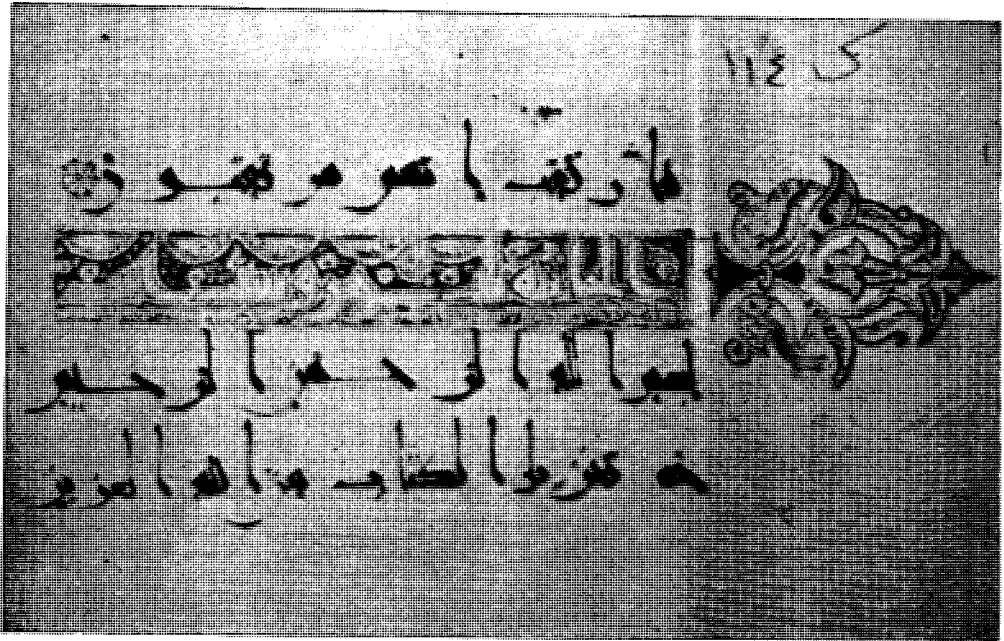 ک ١١٤
فارتقب انهم مرتقبون
بسم الله الرحمن الرحيم
حم تنزيل الكتاب من الله العزيز